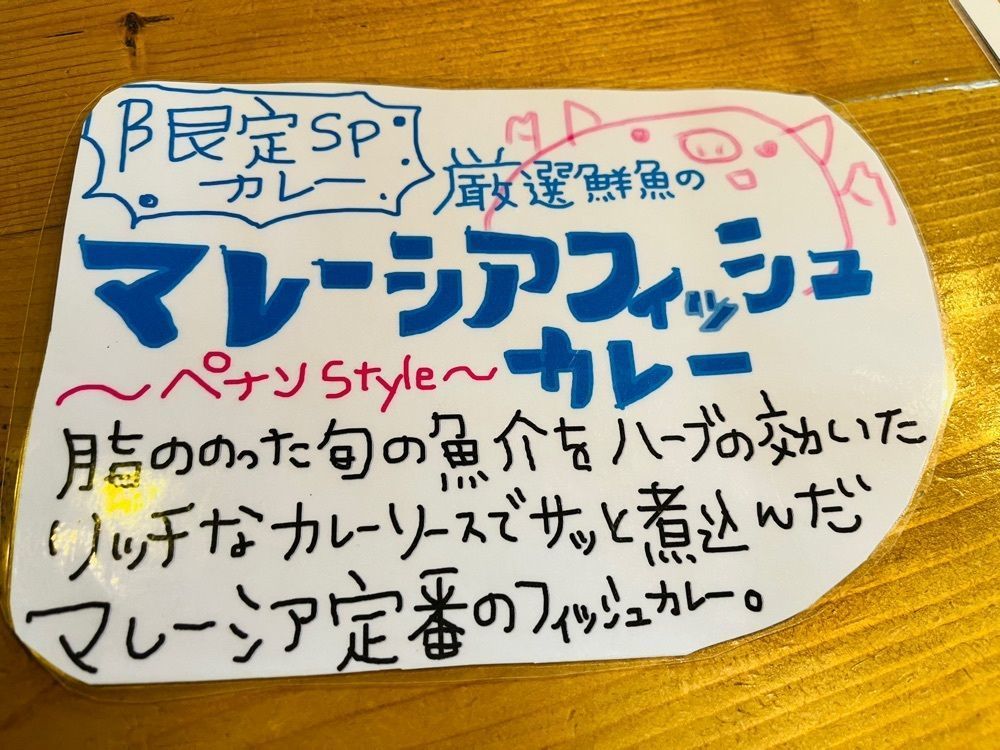 限定SP
カレー
厳選鮮魚の
マレーシアフィッシュ
カレー
～ペナンStyle～
脂ののった旬の魚介をハーブの効いた
リッチなカレーソースでサッと煮込んだ
マレーシア定番のフィッシュカレー。